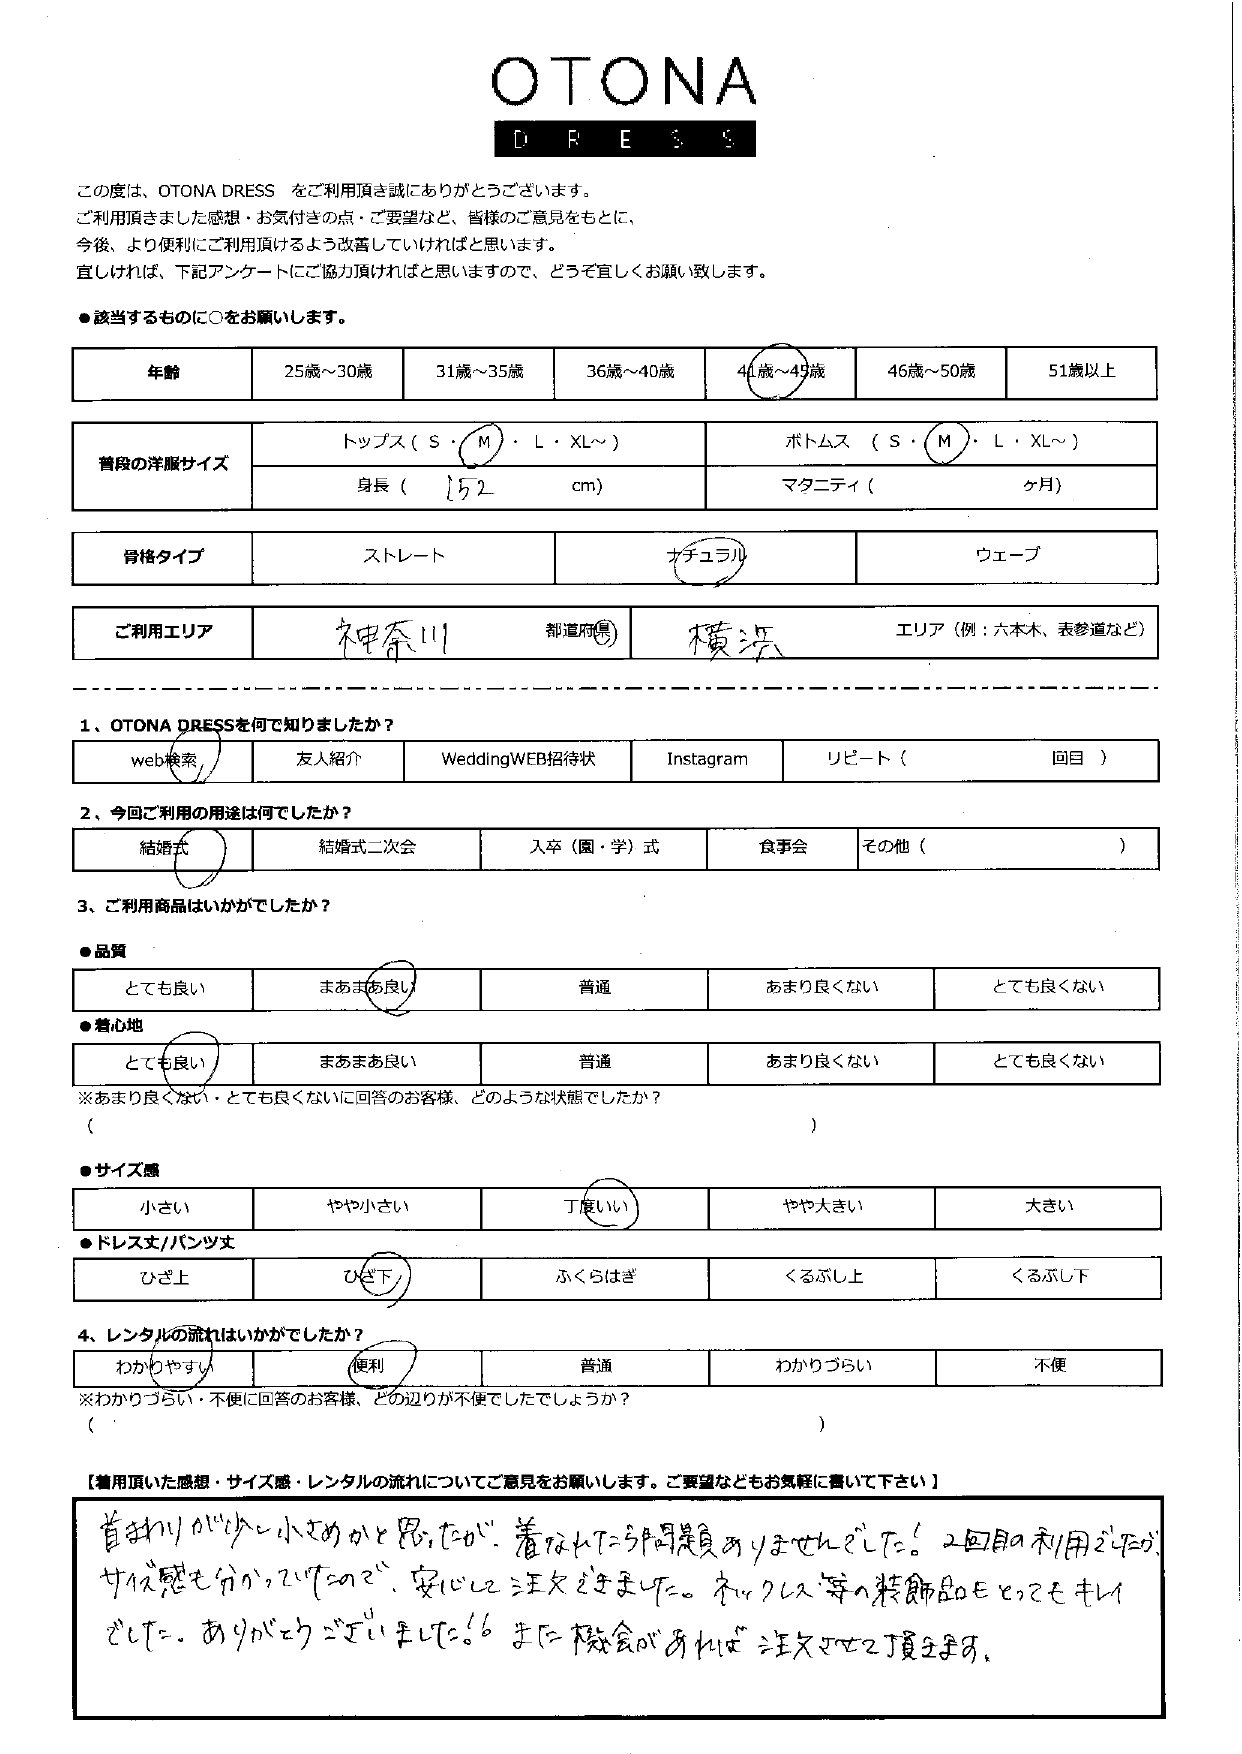 OTONA
DRESS
この度は、OTONA DRESS をご利用頂き誠にありがとうございます。
ご利用頂きました感想・お気付きの点・ご要望など、皆様のご意見をもとに、
今後、より便利にご利用頂けるよう改善していければと思います。
宜しければ、下記アンケートにご協力頂ければと思いますので、どうぞ宜しくお願い致します。
●該当するものに○をお願いします。
年齢 25歳～30歳 31歳～35歳 36歳～40歳 41歳～45歳 46歳～50歳 51歳以上
普段の洋服サイズ トップス ( S ・ M ・ L ・ XL～ ) ボトムス ( S ・ M ・ L ・ XL～ )
身長 ( 152 cm) マタニティ ( ヶ月)
骨格タイプ ストレート ナチュラル ウェーブ
ご利用エリア 神奈川 都道府県 横浜 エリア（例：六本木、表参道など）
1、OTONA DRESSを何で知りましたか？
web検索 友人紹介 WeddingWEB招待状 Instagram リピート ( 回目 )
2、今回ご利用の用途は何でしたか？
結婚式 結婚式二次会 入卒（園・学）式 食事会 その他 ( )
3、ご利用商品はいかがでしたか？
●品質
とても良い まあまあ良い 普通 あまり良くない とても良くない
●着心地
とても良い まあまあ良い 普通 あまり良くない とても良くない
※あまり良くない・とても良くないに回答のお客様、どのような状態でしたか？
( )
●サイズ感
小さい やや小さい 丁度いい やや大きい 大きい
●ドレス丈/パンツ丈
ひざ上 ひざ下 ふくらはぎ くるぶし上 くるぶし下
4、レンタルの流れはいかがでしたか？
わかりやすい 便利 普通 わかりづらい 不便
※わかりづらい・不便に回答のお客様、どの辺りが不便でしたでしょうか？
( )
【着用頂いた感想・サイズ感・レンタルの流れについてご意見をお願いします。ご要望などもお気軽に書いて下さい】
首まわりが少し小さめかと思ったが、着なれたら問題ありませんでした! 2回目の利用でしたが、
サイズ感も分かっていたので、安心して注文できました。ネックレス等の装飾品もとってもキレイ
でした。ありがとうございました!! また機会があれば注文させて頂きます。